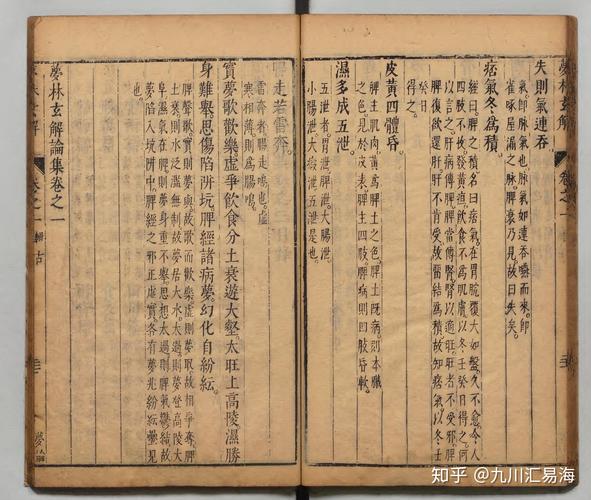 夢林玄解 卷之一
失則氣連吞
氣即脉氣也脉氣如連吞嚥而來即
雀啄屋漏之脉脾衰乃見故曰失矣
痞氣冬爲積
經曰脾之積名曰痞氣在胃脘覆大如盤久不愈令人
四肢不收發黃疸飲食不爲肌膚以冬壬癸日得之何
以言之肝病傳脾脾當傳腎腎以適旺旺者不受邪脾
復欲還肝肝不肯受故留結爲積故知痞氣以冬壬
癸日
得之
皮黃四體昏
脾主肌肉黃爲脾土之色脾土既病則本臟
之色見於皮表脾主四肢脾病則四肢昏軟
濕多成五泄
五泄者胃泄脾泄大腸泄
小腸泄大瘕泄五泄是也
走若雷奔
雷奔者腸走鳴也虛
寒相薄則爲腸鳴
實夢歌歡樂虛爭飲食分土衰遊大壑太旺上高陵濕勝
身難舉思傷陷阱坑脾經諸病夢幻化自紛紜
脾聲歌實則夢與故歌而歡樂虛則夢取故相爭奪脾
土衰則水泛濫無制故夢居大水太過則夢登高陵大
阜濕氣在脾則夢身重不舉思想太過則脾氣鬱結故
夢陷入坑阱中脾經之邪正虛實各有夢兆紛紜疊見
夢林玄解論集卷之一
林玄解 卷之一 輯古
知乎 @九川汇易海